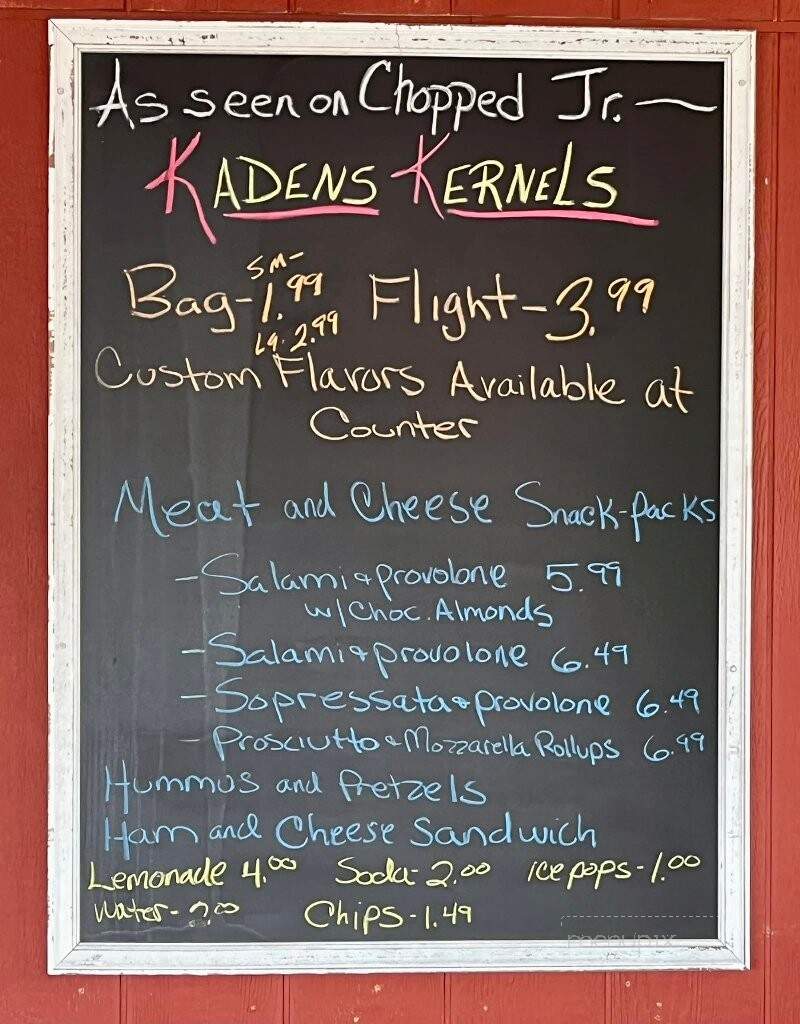 As seen on Chopped Jr. —
KADENS KERNELS
SM-
Bag- 1.99 Flight - 3.99
Lg. 2.99
Custom Flavors Available at
Counter
Meat and Cheese Snack-packs
- Salami & provolone 5.99
w/ Choc. Almonds
- Salami & provolone 6.49
- Sopressata & provolone 6.49
- Prosciutto & Mozzarella Rollups 6.99
Hummus and Pretzels
Ham and Cheese Sandwich
Lemonade 4.00 Soda- 2.00 ice pops - 1.00
Water - Chips - 1.49
menupix